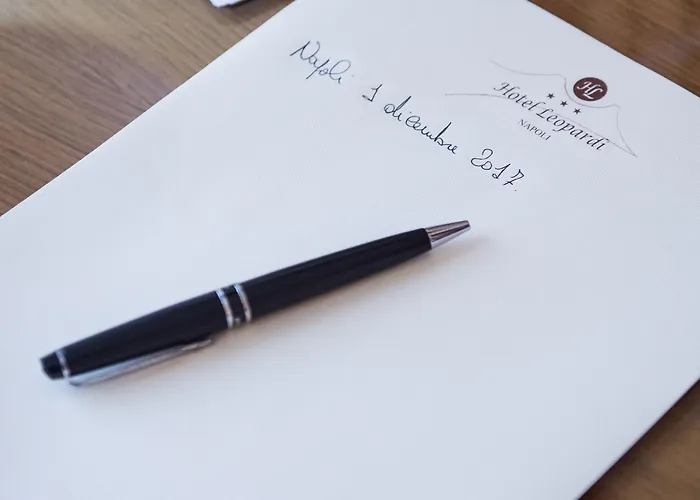 HL
Hotel Leopardi
NAPOLI
Napoli 1 dicembre 2017.